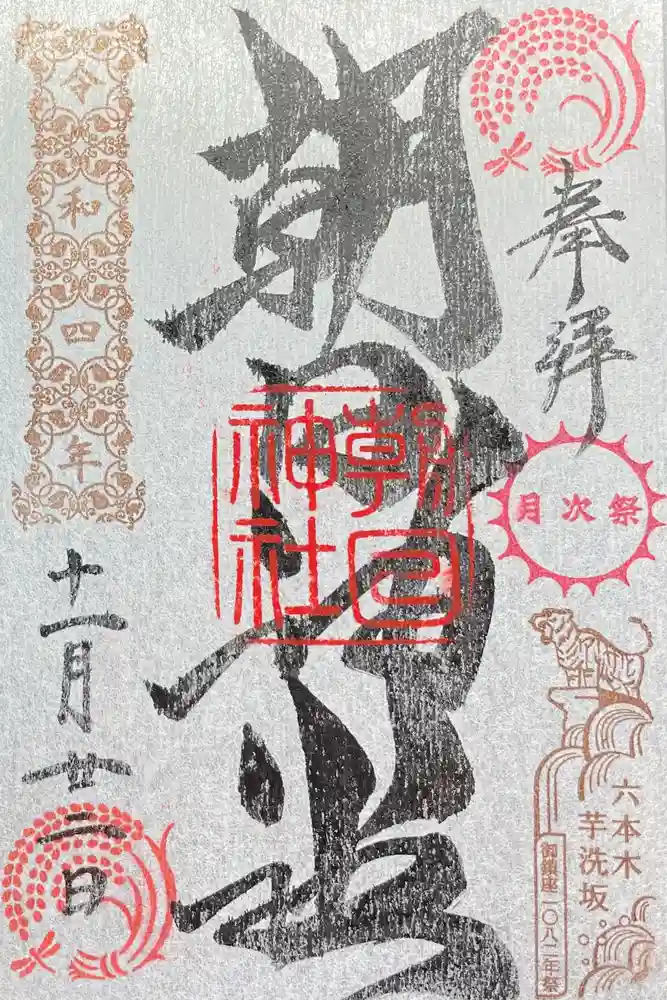 奉拝
月次祭
六本木
芋洗坂
御鎮座一〇八二年祭
朝日神社
朝日
神社
令和四年
十一月廿三日